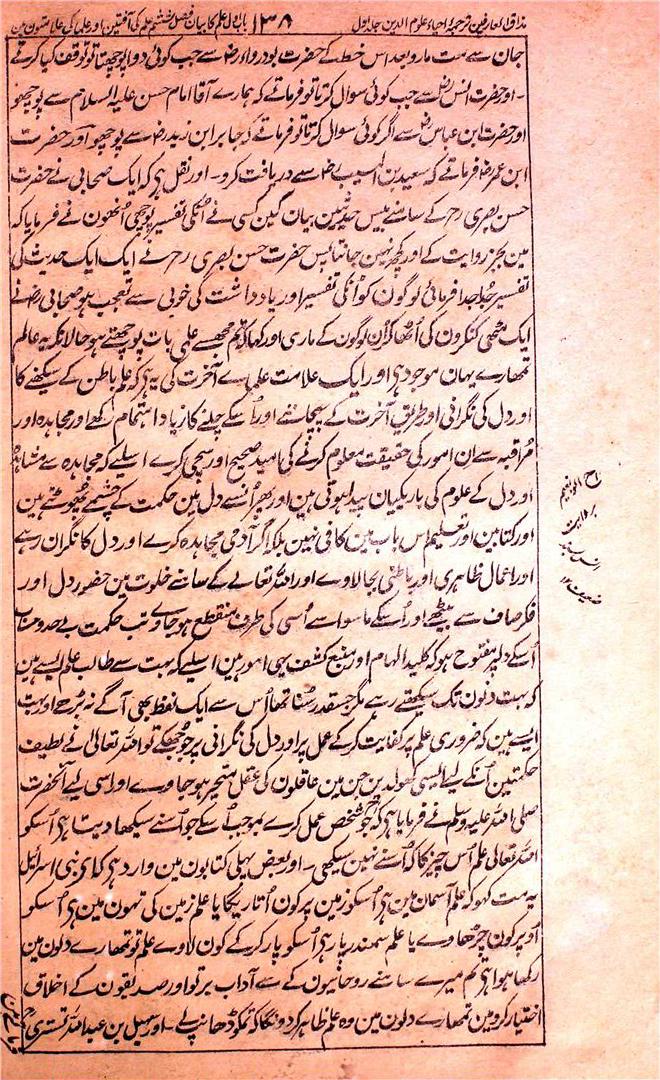 مذاق العارفین ترجمہ احیاء علوم الدین جلد اول ۱۳۸ باب اول علم کا بیان فصل ششم علم کی آفتین اور علما کی علامتون مین
جان سے مت مارو بعد اس خط کے حضرت ابودرداء رض سے جب کوئی دوا پوچھتا تو توقف کیا کرتے
۔ اور حضرت انس رض سے جب کوئی سوال کرتا تو فرماتے کہ ہمارے آقا امام حسن علیہ السلام سے پوچھو
اور حضرت ابن عباس رض سے اگر کوئی سوال کرتا تو فرماتے کہ جابر ابن زید رض سے پوچھو اور حضرت
ابن عمر رض فرماتے کہ سعید بن المسیب رض سے دریافت کرو۔ اور نقل ہی کہ ایک صحابی نے حضرت
حسن بصری رح کے سامنے بیس حدیثین بیان کین کسی نے اُنکی تفسیر پوچھی اُنھون نے فرمایا کہ
مین بجز روایت کے اور کچھ نہین جانتا پس حضرت حسن بصری رح نے ایک ایک حدیث کی
تفسیر جدا جدا فرمائی لوگون کو اُنکی تفسیر اور یادداشت کی خوبی سے تعجب ہو صحابی رض نے
ایک مٹھی کنکرون کی اُٹھا کر اُن لوگون کے ماری اور کہا کہ تم مجھسے علمی بات پوچھتے ہو حالانکہ یہ عالم
تمھارے یہان موجود ہی اور ایک علامت علماے آخرت کی یہ ہی کہ علم باطن کے سیکھنے کا
اور دل کی نگرانی اور طریق آخرت کے پہچاننے اور اُسکے چلنے کا زیادہ اہتمام رکھے اور مجاہدہ اور
مراقبہ سے ان امور کی حقیقت معلوم کرنے کی امید صحیح اور سچی کرے اسلیے کہ مجاہدہ سے مشاہدہ
اور دل کے علوم کی باریکیان پیدا ہوتی ہین اور پھر اُنسے دل مین حکمت کے چشمے پھوٹتے ہین
اور کتابین اور تعلیم اس باب مین کافی نہین بلکہ اگر آدمی مجاہدہ کرے اور دل کا نگران رہے
اور اعمال ظاہری اور باطنی بجالاوے اور اللہ تعالی کے سامنے خلوت مین حضور دل اور
فکر صاف سے بیٹھے اور اُسکے ماسوا سے اُسی کی طرف منقطع ہو جاوے تب حکمت بے حدوحساب
اُسکے دلپر مفتوح ہو کہ کلید الہام اور منبع کشف یہی امور ہین اسلیے کہ بہت سے طالب علم ایسے ہین
کہ بہت دنون تک سیکھتے رہے مگر جسقدر سنا تھا اُس سے ایک لفظ بھی آگے نہ بڑھے اور بہت
ایسے ہین کہ ضروری علم پر کفایت کر کے عمل پر اور دل کی نگرانی پر جو جھکے تو اللہ تعالی نے لطیف
حکمتین اُنکے لیے ایسی کھولدین جن مین عاقلون کی عقل متحیر ہو جاوے اور اسی لیے آنحضرت
صلی اللہ علیہ وسلم نے فرمایا ہی کہ جو شخص عمل کرے بموجب اُسکے جو اُسنے سیکھا دیتا ہی اُسکو
اللہ تعالی علم اُس چیز کا کہ اُسنے نہین سیکھی۔ اور بعض پہلی کتابون مین وارد ہی کہ ای بنی اسرائیل
یہ مت کہو کہ علم آسمان مین ہی اُسکو زمین پر کون اُتاریگا یا علم زمین کی تہون مین ہی اُسکو
اوپر کون چڑھاوے یا علم سمندر پار ہی اُسکو پار کر کے کون لاوے علم تو تمھارے دلون مین
رکھا ہوا ہی تم میرے سامنے روحانیون کے سے آداب برتو اور صدیقون کے اخلاق
اختیار کرو مین تمھارے دلون مین وہ علم ظاہر کردونگا کہ تمکو ڈھانپ لے۔ اور سہیل بن عبداللہ تستری
بروایت